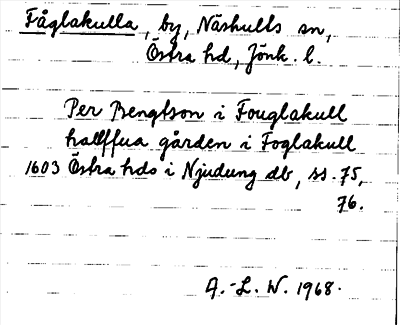 Fåglakulla, by, Näshults sn,
Östra hd, Jönk. l.
Per Bengtson i Fouglakull
hallffua gården i Foglakull
1603 Östra hds i Njudung db, ss. 75,
76.
A.-L. W. 1968.